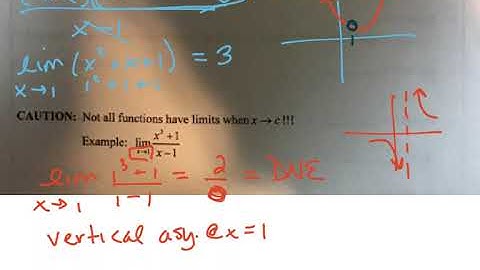 x→1
lim (x² + x + 1) = 3
x→1 1² + 1 + 1
1
CAUTION: Not all functions have limits when x → c !!!
Example: lim x→1 x³ + 1 / x − 1
lim 1³ − 1 / 1 − 1 = 2 / 0 = DNE
x→1
vertical asy. @ x = 1